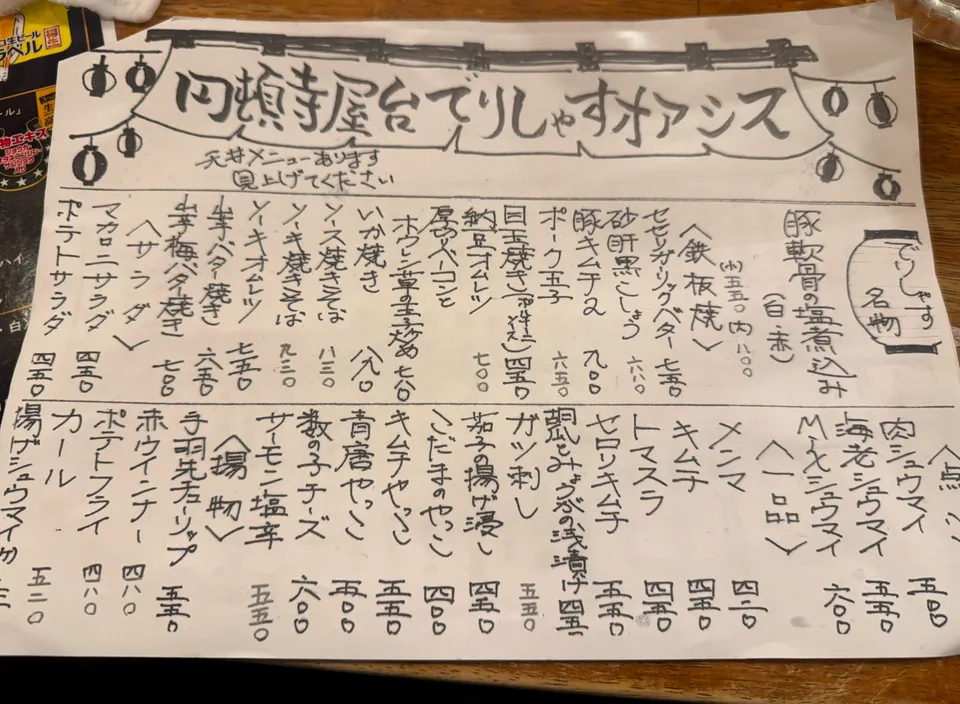 円頓寺屋台でりしゃすオアシス
天井メニューあります
見上げてください
でりしゃす
名物
豚軟骨の塩煮込み
(白・赤)
(小)五五〇 内八〇〇
〈鉄板焼〉
セセリガーリックバター 七五〇
砂肝黒こしょう 六八〇
豚キムチ 九〇〇
ポーク玉子 六五〇
目玉焼き 四五〇
納豆オムレツ 七〇〇
厚切ベーコンと
ホウレン草の玉子炒め 七八〇
いか焼き 八九〇
ソース焼きそば 八三〇
ソーキ焼きそば 九三〇
ソーキオムレツ 七五〇
山芋バター焼き 六五〇
山芋梅バタ焼き 七〇〇
〈サラダ〉
マカロニサラダ 四五〇
ポテトサラダ 四五〇
〈点
肉シュウマイ 五〇〇
海老シュウマイ 五五〇
Mixシュウマイ 六〇〇
〈一品〉
メンマ 四二〇
キムチ 四五〇
トマスラ 四五〇
セロリキムチ 五五〇
胡瓜とみょうがの浅漬け 四五〇
ガツ刺し 五五〇
茄子の揚げ浸し 四五〇
こだまのやっこ 四〇〇
キムチやっこ 五五〇
青唐やっこ 五〇〇
数の子チーズ 六〇〇
サーモン塩辛 五五〇
〈揚物〉
手羽先チューリップ 五五〇
赤ウインナー 四八〇
ポテトフライ 四八〇
カール 五二〇
揚げシュウマイ